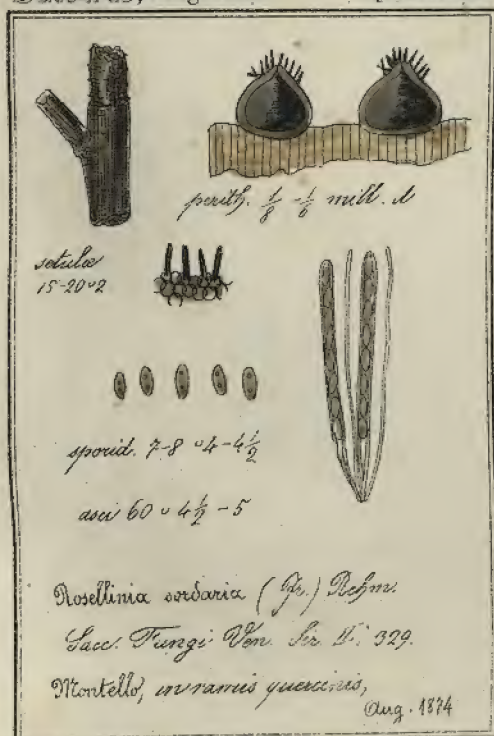 perith. 1/8 - 1/6 mill. d
setulæ
15-20 ᵕ 2
sporid. 7-8 ᵕ 4-4 1/2
asci 60 ᵕ 4 1/2 - 5
Rosellinia sordaria (Fr.) Rehm.
Sacc. Fungi Ven. Ser. II: 329.
Montello, in ramis quercinis,
Aug. 1874